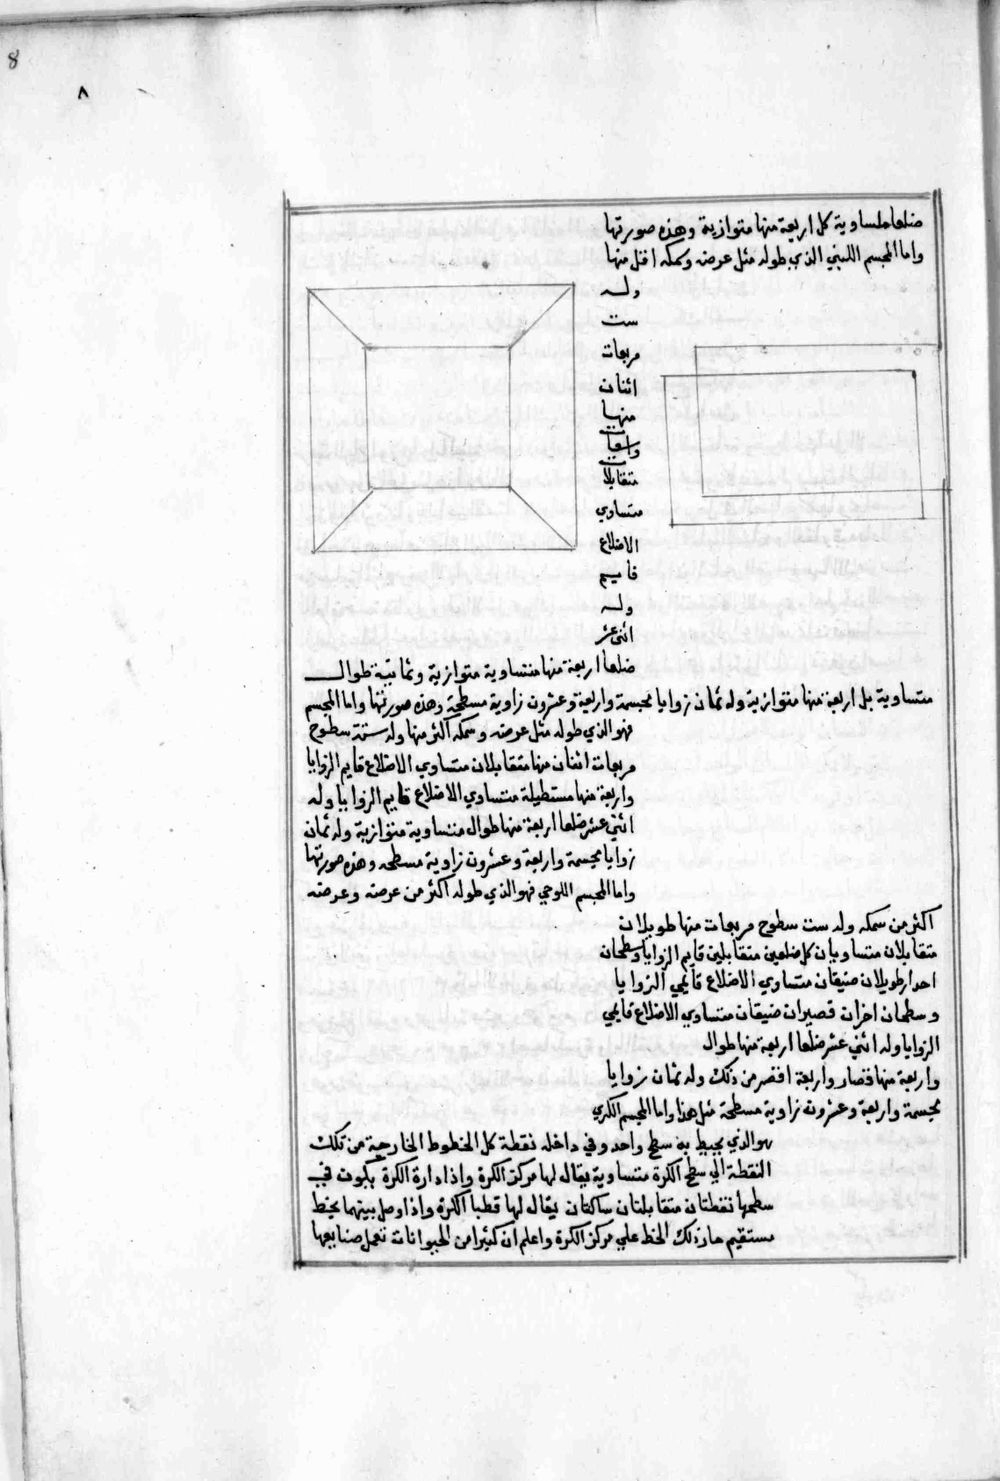 8
٨
ضلعا متساوية كل اربعة منها متوازية وهذه صورتها
واما المجسم اللبني الذي طوله مثل عرضه وسمكه اقل منها
وله
ست
مربعات
اثنان
منها
واسعات
متقابلات
متساوي
الاضلاع
قايم
وله
اثنى عشر
ضلعا اربعة منها متساوية متوازية وثمانية طوال
متساوية بل اربعة منها متوازية وله ثمان زوايا مجسمة واربعة وعشرون زاوية مسطحة وهذه صورتها واما المجسم
فهو الذي طوله مثل عرضه وسمكه اكثر منها وله ستة سطوح
مربعات اثنان منها متقابلان متساوي الاضلاع قايم الزوايا
واربعة منها مستطيلة متساوي الاضلاع قايم الزوايا وله
اثني عشر ضلعا اربعة منها طوال متساوية متوازية وله ثمان
زوايا مجسمة واربعة وعشرون زاوية مسطحه وهذه صورتها
واما المجسم اللوحي فهو الذي طوله اكثر من عرضه وعرضه
اكثر من سمكه وله ست سطوح مربعات منها طويلان
متقابلان متساويان كل ضلعين متقابلين قايم الزوايا وسطحان
طويلان ضيقان متساوي الاضلاع قايمي الزوايا
وسطحان اخران قصيران ضيقان متساوي الاضلاع قايمي
الزوايا وله اثني عشر ضلعا اربعة منها طوال
واربعة منها قصار واربعة اقصر من ذلك وله ثمان زوايا
مجسمة واربعة وعشرون زاوية مسطحة مثل هذا واما المجسم الكري
هو الذي يحيط به سطح واحد وفي داخله نقطة كل الخطوط الخارجة من تلك
النقطة الي سطح الكرة متساوية يقال لها مركز الكرة واذا دارة الكرة يكون في
سطحها نقطتان متقابلتان ساكنتان يقال لها قطبا الكرة واذا وصل بينهما بخط
مستقيم جاز ذلك الخط علي مركز الكرة واعلم ان كثيرا من الحيوانات تعمل صنايعها